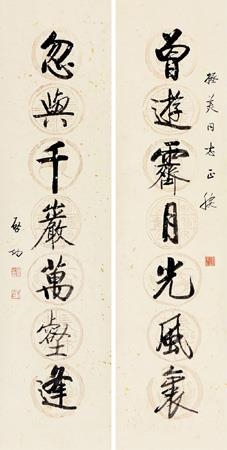 曾遊霽月光風裏
振美同志正腕
忽與千巖萬壑逢
啟功